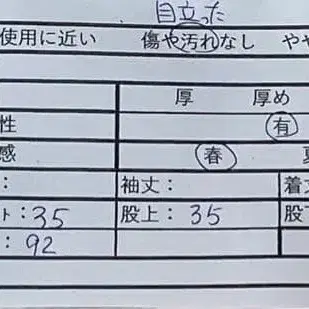 目立った
使用に近い 傷や汚れなし やや
厚 厚め
性 有
感 春 夏
: 袖丈: 着丈
ト:35 股上:35 股下
:92